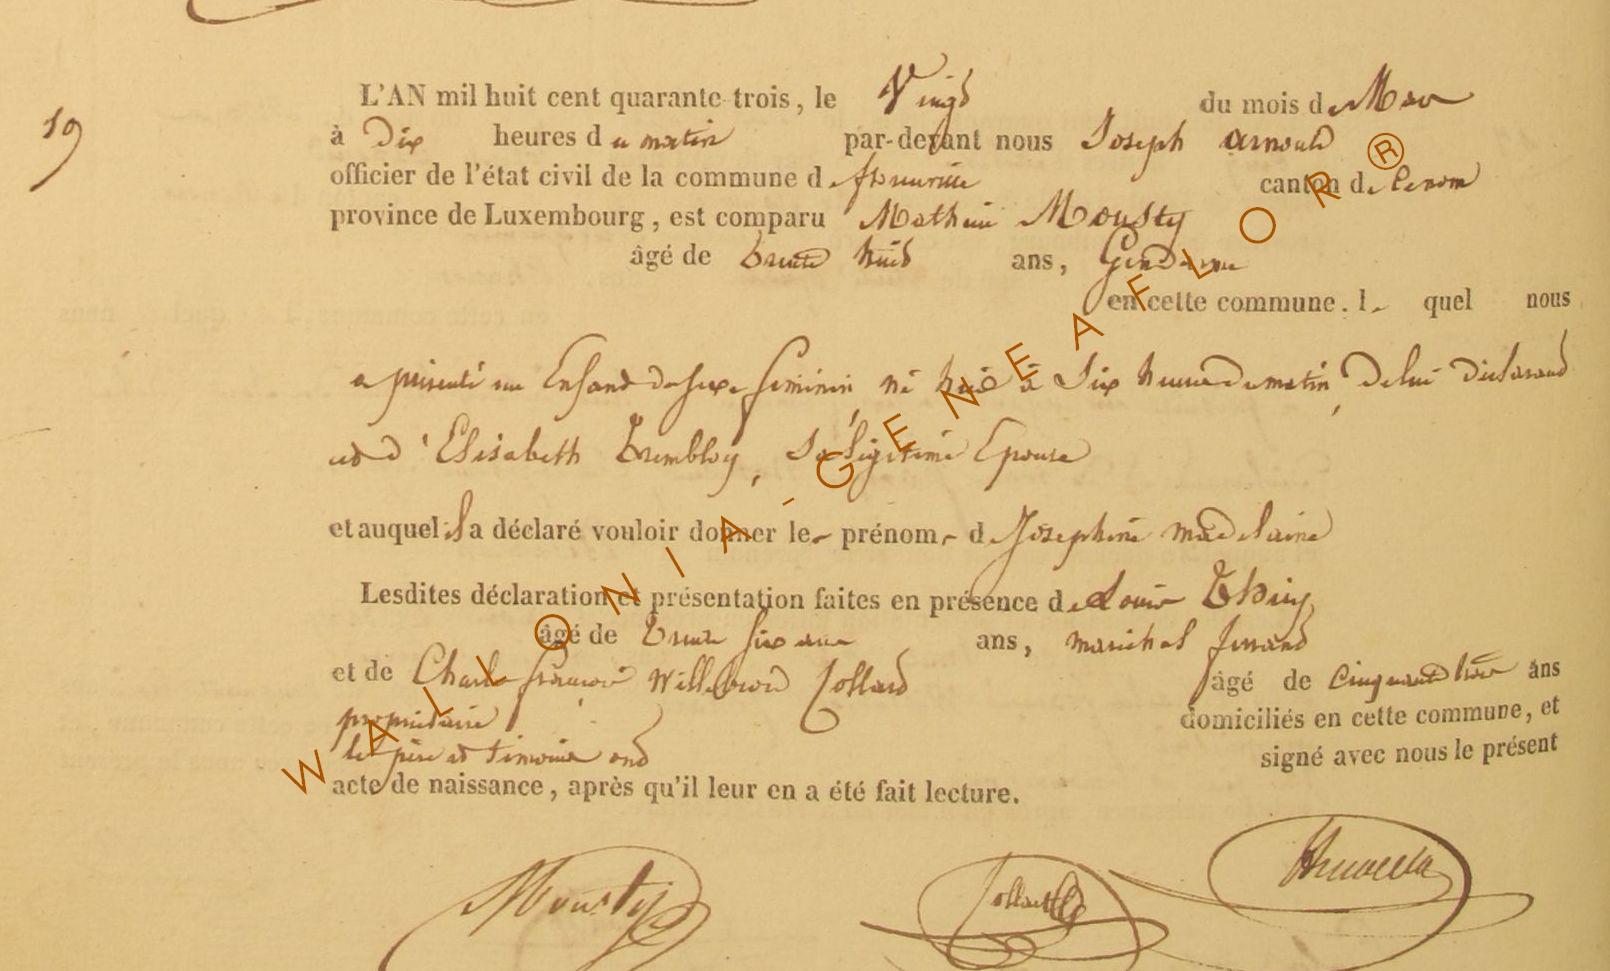 19
L'AN mil huit cent quarante-trois, le Vingt du mois de Mars
à Dix heures du matin par-devant nous Joseph Arnould
officier de l'état civil de la commune de florenville canton de
province de Luxembourg, est comparu Mathieu Mousty
âgé de trente huit ans, Gendarme
en cette commune. le quel nous
a présenté un Enfant du sexe féminin né à Six heures du matin, De lui déclarant
et d'Elisabeth Trembloy, Sa légitime Epouse
et auquel il a déclaré vouloir donner les prénoms de Joséphine madelaine
Lesdites déclaration et présentation faites en présence de Louis Thiry
âgé de trente six ans ans, maréchal ferrand
et de Charles françois Willebrord Collard âgé de Cinquante trois ans
propriétaire domiciliés en cette commune, et
le père et témoins ont signé avec nous le présent
acte de naissance, après qu'il leur en a été fait lecture.
Mousty Collard
WALLONIA-GENEAFLOR®